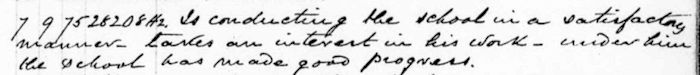 7 9 75 28 20 8 Hz Is conducting the school in a satisfactory
manner - takes an interest in his work - under him
the school has made good progress.